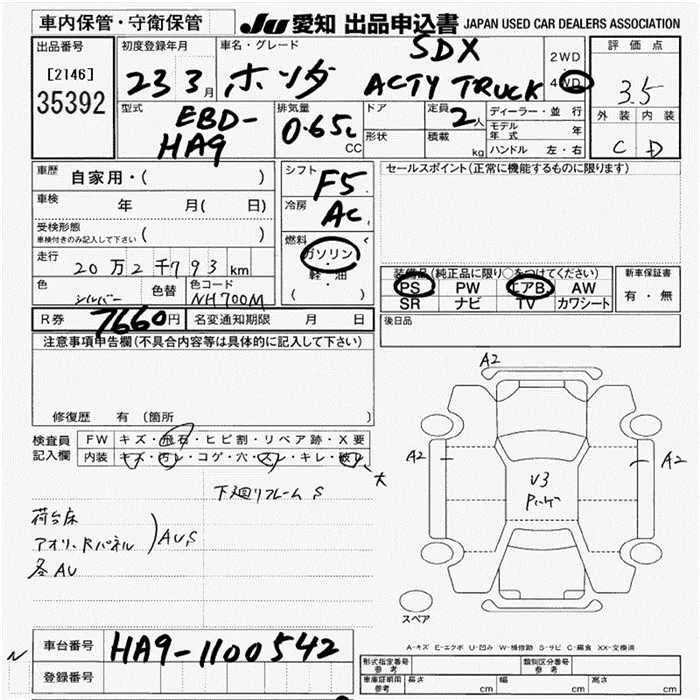 車内保管・守衛保管 JU 愛知 出品申込書 JAPAN USED CAR DEALERS ASSOCIATION
出品番号
[2146]
35392
初度登録年月
23 3月
車名・グレード
ホンダ SDX
ACTY TRUCK
2WD
4WD
評価点
3.5
外装 内装
C D
型式
EBD-
HA9
排気量
0.65L
CC
ドア
形状
定員
2人
積載
kg
ディーラー・並行
モデル年式 年
ハンドル 左・右
車歴 自家用・( )
車検 年 月( 日)
受検形態
車検付きのみ記入して下さい ( )
走行 20万2千793km
色 シルバー 色替 カラーNo. NH700M
シフト
F5
冷房
AC
燃料
ガソリン
・
軽・油
( )
セールスポイント(正常に機能するものに限ります)
装備品(純正品に限り○をつけてください)
PS PW エアB AW
SR ナビ TV カワシート
新車保証書
有・無
後日品
R券 7660円 名変通知期限 月 日
注意事項申告欄(不具合内容等は具体的に記入して下さい)
修復歴 有(箇所 )
検査員
記入欄
FW キズ・飛石・ヒビ割・リペア跡・X要
内装 キズ・汚レ・コゲ・穴・スレ・キレ・破レ
大
下廻リフレーム S
荷台床
アオリ、Rパネル
)AUS
各AU
A2
A2
A2
U3
スペア
A-キズ E-エクボ U-凹み W-補修跡 S-サビ C-腐食 XX-交換済
車台番号 HA9-1100542
登録番号
N
形式指定番号
参考
類別区分番号
参考
車庫証明用
参考
長さ cm 幅 cm 高さ cm